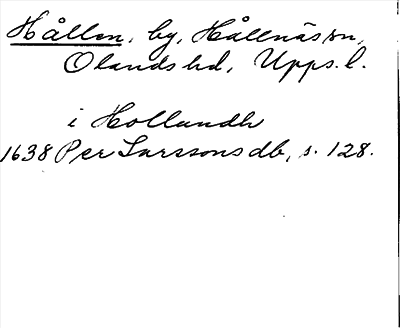 Hållen, by, Hållnäs sn,
Olands hd, Upps. l.
i Hollandh
1638 Per Larssons db, s. 128.